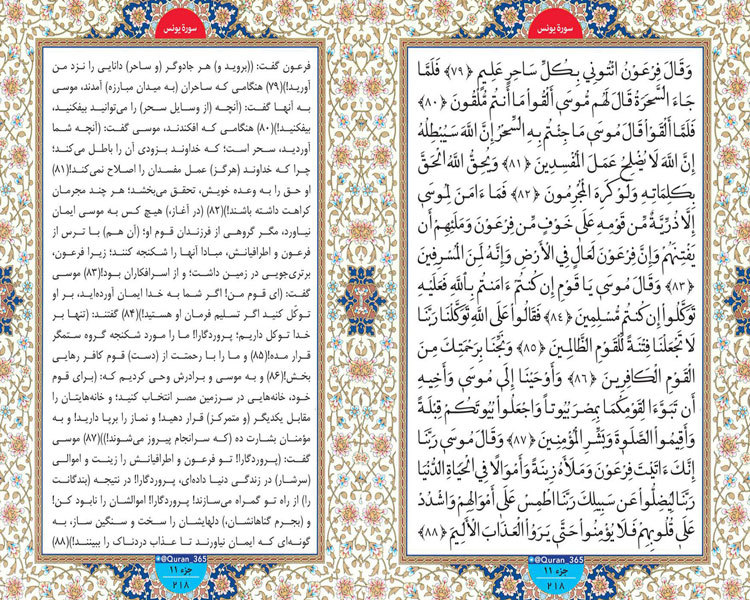 سورة یونس
وَقَالَ فِرْعَوْنُ ائْتُونِي بِكُلِّ سَاحِرٍ عَلِيمٍ ﴿٧٩﴾ فَلَمَّا
جَاءَ السَّحَرَةُ قَالَ لَهُم مُّوسَىٰ أَلْقُوا مَا أَنتُم مُّلْقُونَ ﴿٨٠﴾
فَلَمَّا أَلْقَوْا قَالَ مُوسَىٰ مَا جِئْتُم بِهِ السِّحْرُ إِنَّ اللَّهَ سَيُبْطِلُهُ
إِنَّ اللَّهَ لَا يُصْلِحُ عَمَلَ الْمُفْسِدِينَ ﴿٨١﴾ وَيُحِقُّ اللَّهُ الْحَقَّ
بِكَلِمَاتِهِ وَلَوْ كَرِهَ الْمُجْرِمُونَ ﴿٨٢﴾ فَمَا ءَامَنَ لِمُوسَىٰ
إِلَّا ذُرِّيَّةٌ مِّن قَوْمِهِ عَلَىٰ خَوْفٍ مِّن فِرْعَوْنَ وَمَلَئِهِمْ أَن
يَفْتِنَهُمْ وَإِنَّ فِرْعَوْنَ لَعَالٍ فِي الْأَرْضِ وَإِنَّهُ لَمِنَ الْمُسْرِفِينَ
﴿٨٣﴾ وَقَالَ مُوسَىٰ يَا قَوْمِ إِن كُنتُمْ ءَامَنتُم بِاللَّهِ فَعَلَيْهِ
تَوَكَّلُوا إِن كُنتُم مُّسْلِمِينَ ﴿٨٤﴾ فَقَالُوا عَلَى اللَّهِ تَوَكَّلْنَا رَبَّنَا
لَا تَجْعَلْنَا فِتْنَةً لِّلْقَوْمِ الظَّالِمِينَ ﴿٨٥﴾ وَنَجِّنَا بِرَحْمَتِكَ مِنَ
الْقَوْمِ الْكَافِرِينَ ﴿٨٦﴾ وَأَوْحَيْنَا إِلَىٰ مُوسَىٰ وَأَخِيهِ
أَن تَبَوَّءَا لِقَوْمِكُمَا بِمِصْرَ بُيُوتًا وَاجْعَلُوا بُيُوتَكُمْ قِبْلَةً
وَأَقِيمُوا الصَّلَوٰةَ وَبَشِّرِ الْمُؤْمِنِينَ ﴿٨٧﴾ وَقَالَ مُوسَىٰ رَبَّنَا
إِنَّكَ ءَاتَيْتَ فِرْعَوْنَ وَمَلَأَهُ زِينَةً وَأَمْوَالًا فِي الْحَيَاةِ الدُّنْيَا
رَبَّنَا لِيُضِلُّوا عَن سَبِيلِكَ رَبَّنَا اطْمِسْ عَلَىٰ أَمْوَالِهِمْ وَاشْدُدْ
عَلَىٰ قُلُوبِهِمْ فَلَا يُؤْمِنُوا حَتَّىٰ يَرَوُا الْعَذَابَ الْأَلِيمَ ﴿٨٨﴾
@Quran_365
جزء ۱۱
۲۱۸
سورة یونس
فرعون گفت: ((بروید و) هر جادوگر (و ساحر) دانایی را نزد من
آورید!)(۷۹) هنگامی که ساحران (به میدان مبارزه) آمدند، موسی
به آنها گفت: (آنچه (از وسایل سحر) را می‌توانید بیفکنید،
بیفکنید!)(۸۰) هنگامی که افکندند، موسی گفت: (آنچه شما
آوردید، سحر است؛ که خداوند بزودی آن را باطل می‌کند؛
چرا که خداوند (هرگز) عمل مفسدان را اصلاح نمی‌کند!(۸۱)
او حق را به وعده خویش، تحقق می‌بخشد؛ هر چند مجرمان
کراهت داشته باشند!)(۸۲) (در آغاز،) هیچ کس به موسی ایمان
نیاورد، مگر گروهی از فرزندان قوم او؛ (آن هم) با ترس از
فرعون و اطرافیانش، مبادا آنها را شکنجه کنند؛ زیرا فرعون،
برتری‌جویی در زمین داشت؛ و از اسرافکاران بود!(۸۳) موسی
گفت: (ای قوم من! اگر شما به خدا ایمان آورده‌اید، بر او
توکل کنید اگر تسلیم فرمان او هستید!)(۸۴) گفتند: (تنها بر
خدا توکل داریم؛ پروردگارا! ما را مورد شکنجه گروه ستمگر
قرار مده!(۸۵) و ما را با رحمتت از (دست) قوم کافر رهایی
بخش!(۸۶) و به موسی و برادرش وحی کردیم که: (برای قوم
خود، خانه‌هایی در سرزمین مصر انتخاب کنید؛ و خانه‌هایتان را
مقابل یکدیگر (و متمرکز) قرار دهید! و نماز را برپا دارید! و به
مؤمنان بشارت ده (که سرانجام پیروز می‌شوند!))(۸۷) موسی
گفت: (پروردگارا! تو فرعون و اطرافیانش را زینت و اموالی
(سرشار) در زندگی دنیا داده‌ای، پروردگارا! در نتیجه (بندگانت
را) از راه تو گمراه می‌سازند! پروردگارا! اموالشان را نابود کن!
و (بجرم گناهانشان،) دلهایشان را سخت و سنگین ساز، به
گونه‌ای که ایمان نیاورند تا عذاب دردناک را ببینند!)(۸۸)
@Quran_365
جزء ۱۱
۲۱۸